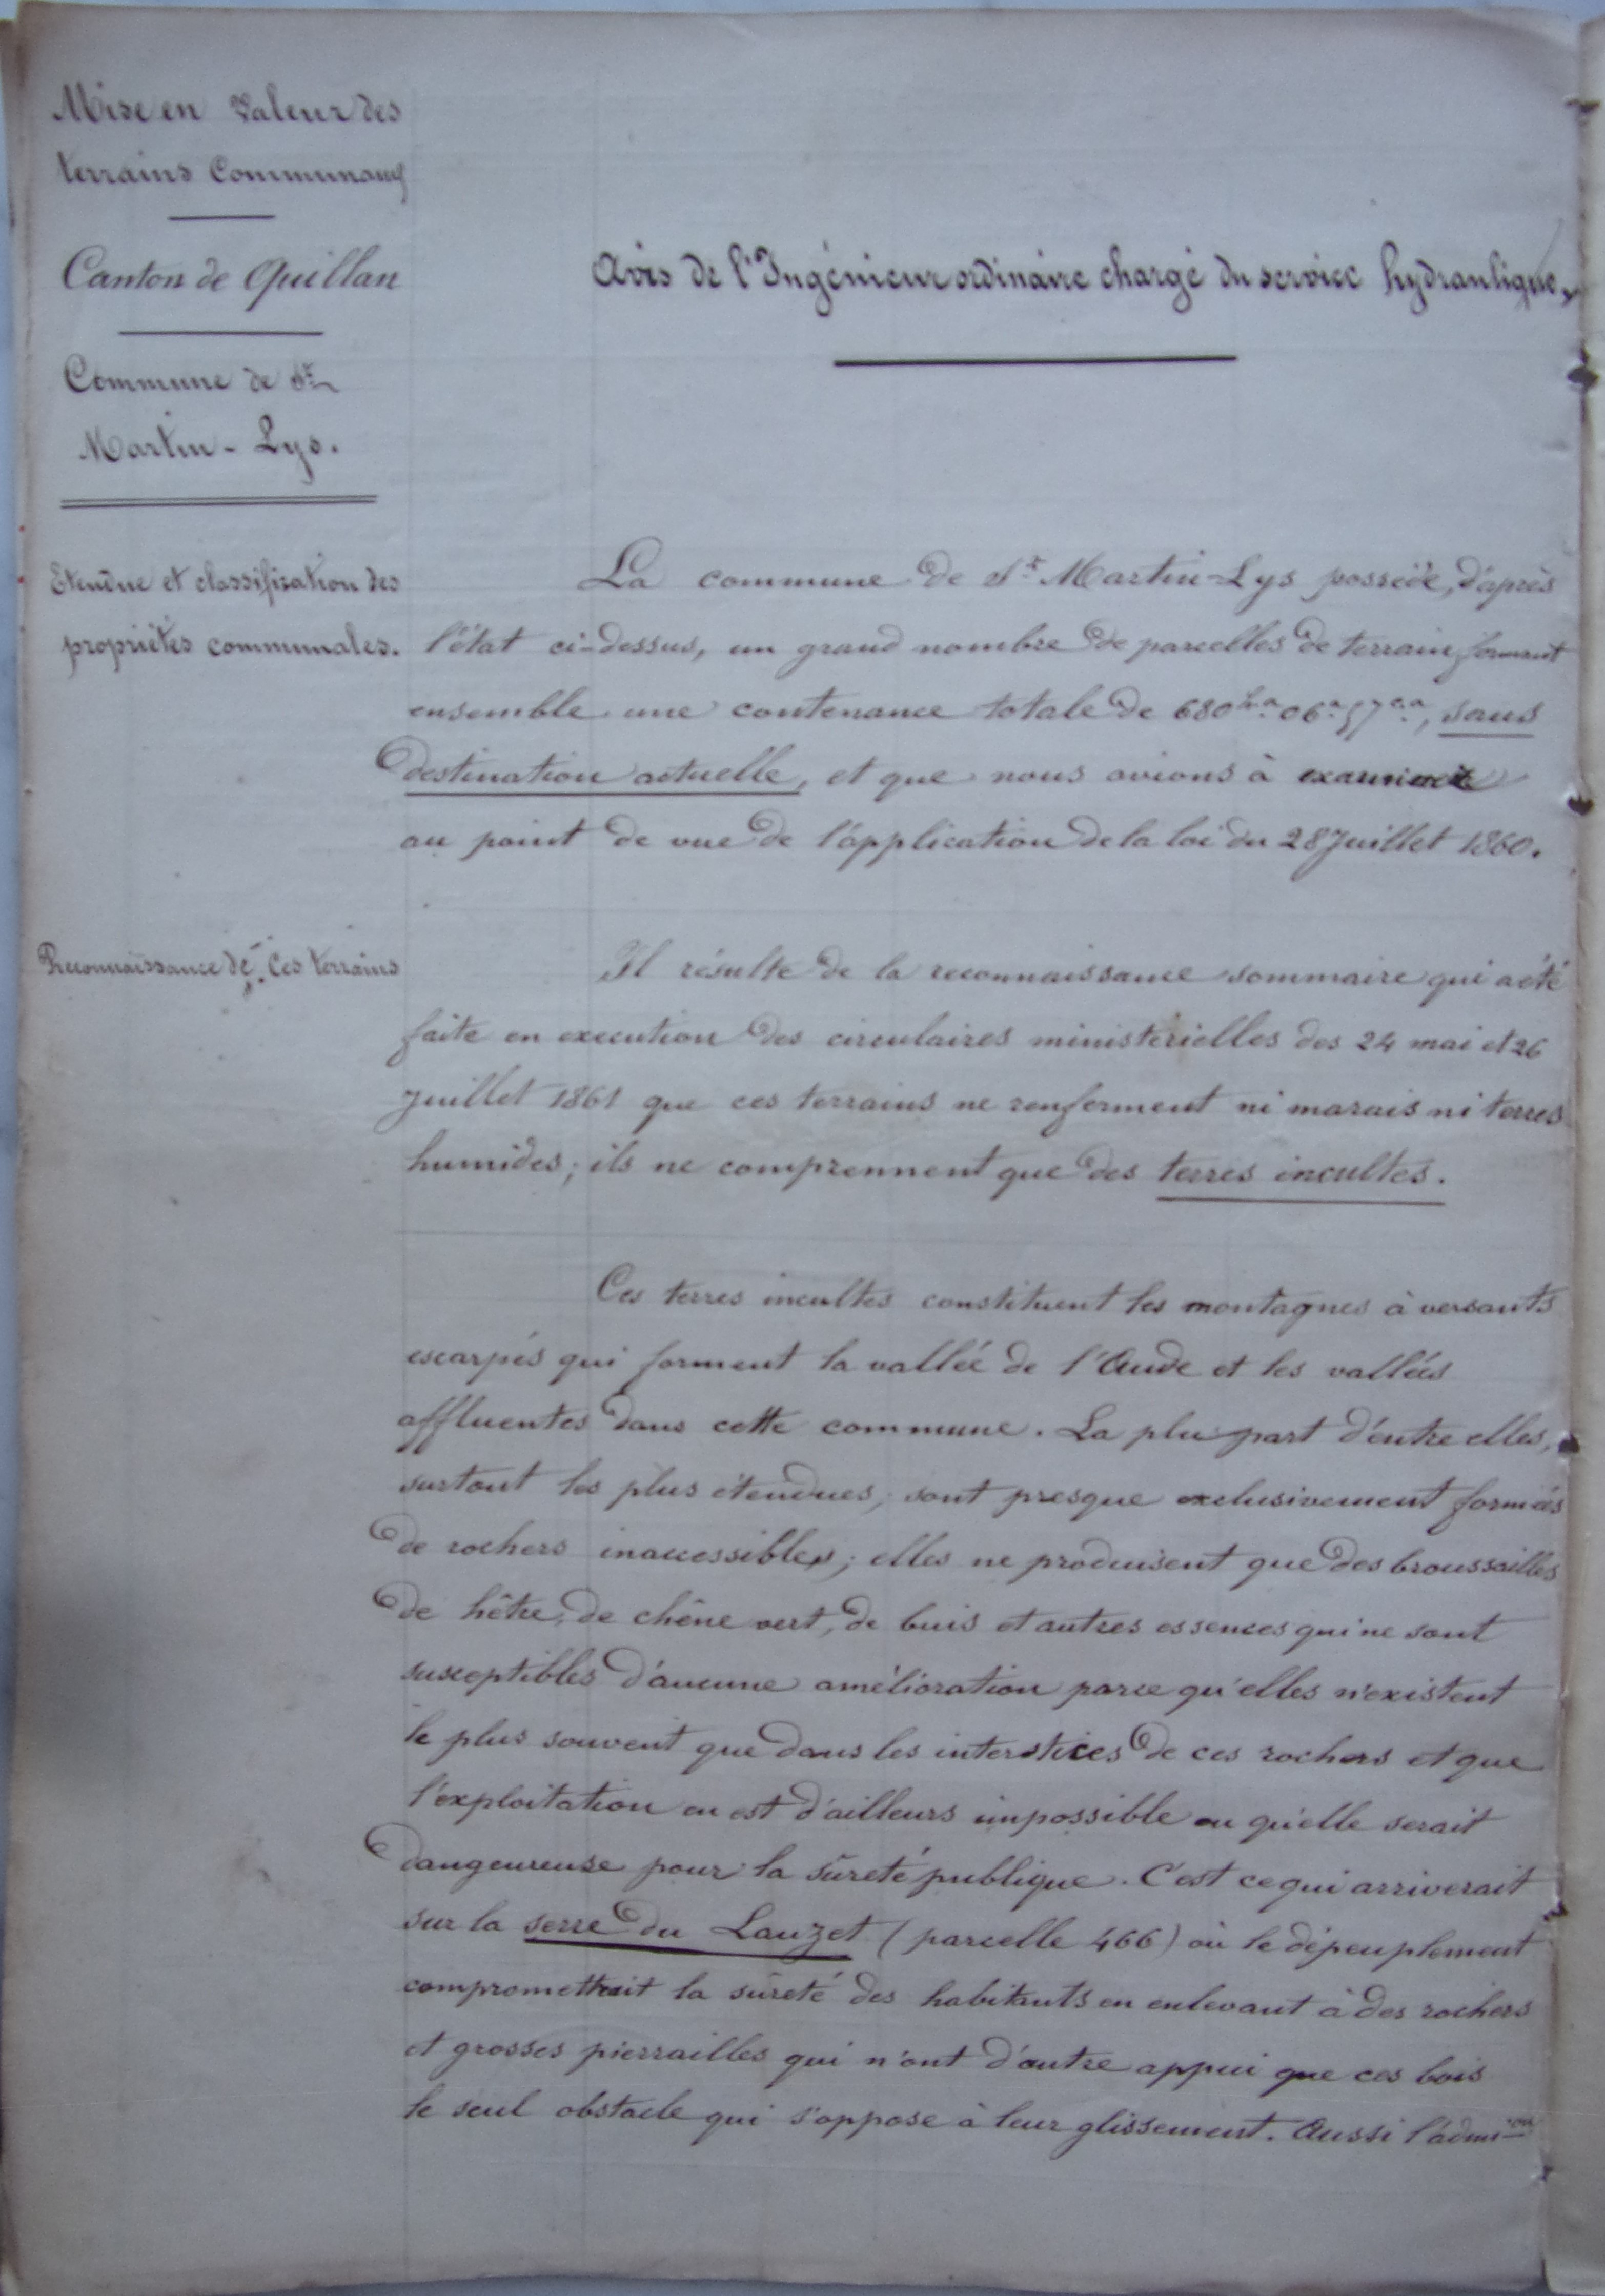 Mise en Valeur des
terrains Communaux
Canton de Quillan
Commune de St
Martin-Lys.
Avis de l'Ingénieur ordinaire chargé du service hydraulique.
Etendue et classification des
propriétés communales.
La commune de St Martin-Lys possède, d'après
l'état ci-dessus, un grand nombre de parcelles de terrain formant
ensemble une contenance totale de 680ha 06a 57ca, sans
destination actuelle, et que nous avions à examiner
au point de vue de l'application de la loi du 28 Juillet 1860.
Reconnaissance de ces terrains
Il résulte de la reconnaissance sommaire qui a été
faite en execution des circulaires ministérielles des 24 mai et 26
Juillet 1861 que ces terrains ne renferment ni marais ni terres
humides; ils ne comprennent que des terres incultes.
Ces terres incultes constituent les montagnes à versants
escarpés qui forment la vallée de l'Aude et les vallées
affluentes dans cette commune. La plupart d'entre elles,
surtout les plus étendues, sont presque exclusivement formées
de rochers inaccessibles; elles ne produisent que des broussailles
de hêtre, de chêne vert, de buis et autres essences qui ne sont
susceptibles d'aucune amélioration parce qu'elles n'existent
le plus souvent que dans les interstices de ces rochers et que
l'exploitation en est d'ailleurs impossible ou qu'elle serait
dangeureuse pour la sûreté publique. C'est ce qui arriverait
sur la serre du Lauzet (parcelle 466) où le dépeuplement
compromettrait la sûreté des habitants en enlevant à des rochers
et grosses pierrailles qui n'ont d'autre appui que ces bois
le seul obstacle qui s'oppose à leur glissement. Aussi l'admion